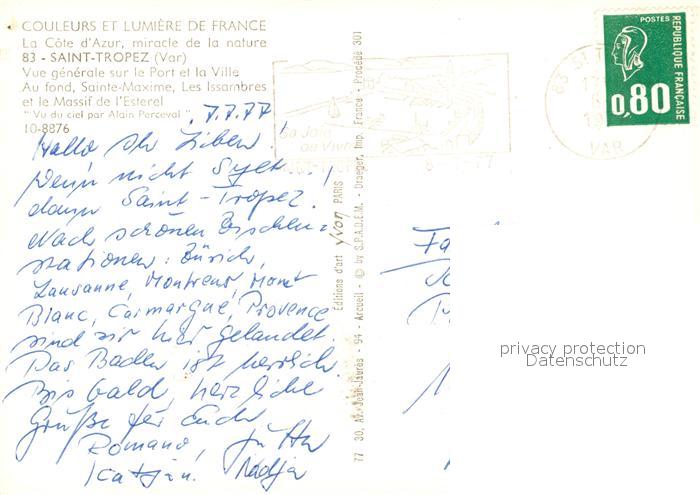 COULEURS ET LUMIÈRE DE FRANCE
La Côte d'Azur, miracle de la nature
83 - SAINT-TROPEZ (Var)
Vue générale sur le Port et la Ville
Au fond, Sainte-Maxime, Les Issambres
et le Massif de l'Esterel
"Vu du ciel par Alain Perceval"
10-8876
7.7.77
Hallo Ihr Lieben!
Wenn nicht Sylt!
dann Saint-Tropez.
Nach schönen Zwischen-
stationen: Zürich,
Lausanne, Montreux, Mont
Blanc, Caimargue, Provence
sind wir hier gelandet.
Das Baden ist herrlich.
Bis bald, herzliche
Grüße für Euch
Romano, Jutta
Katja. Nadja
Editions d'art yvon PARIS
77 30, Av. Jean-Jaurès - 94 - Arcueil - © by S.P.A.D.E.M. - Draeger, Imp. France - Procédé 301
Sa Joie
de Vivre
POSTES
REPUBLIQUE FRANÇAISE
0,80
83 ST T
VAR
Fa
privacy protection
Datenschutz